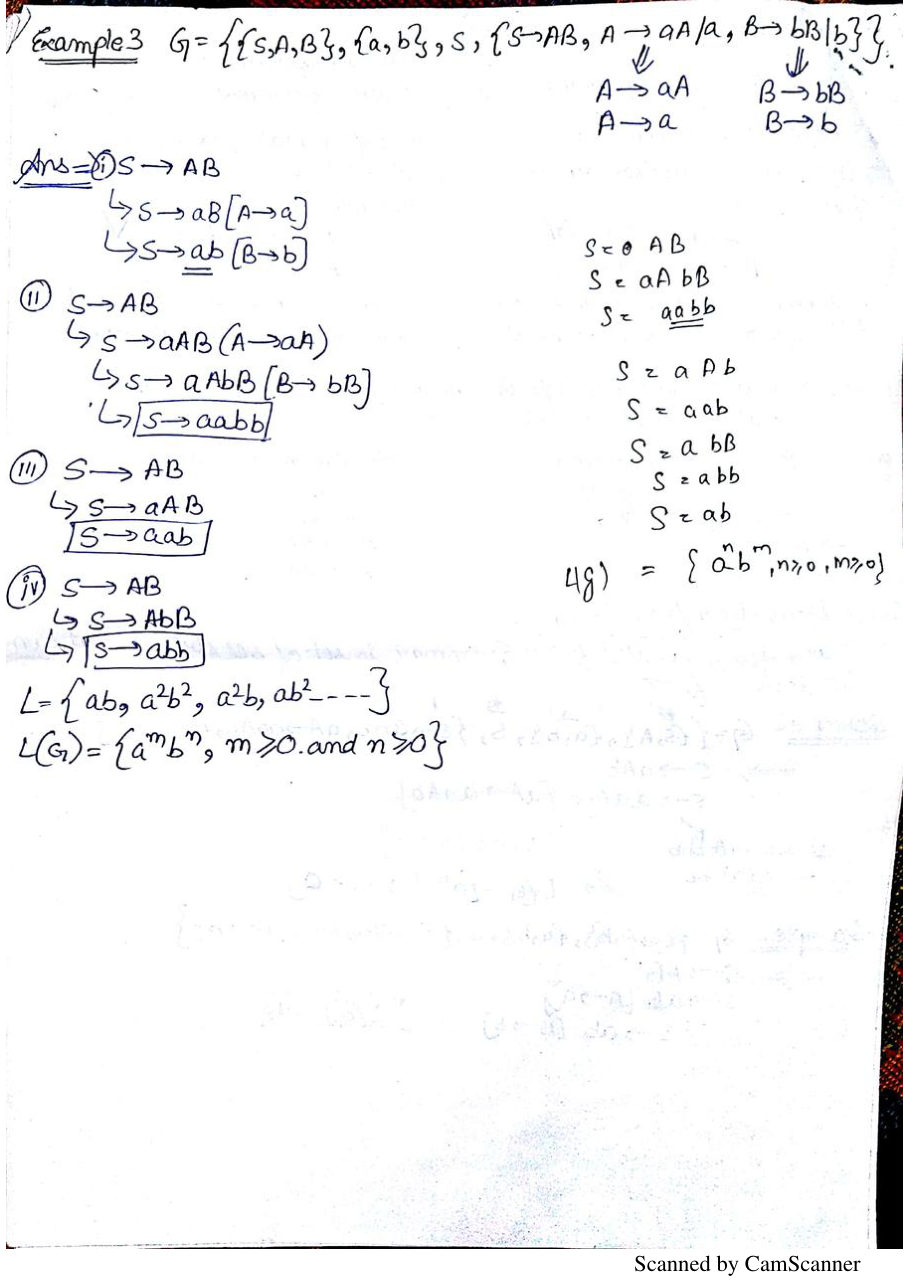 Example 3 G = {{S,A,B}, {a,b}, S, {S→AB, A→aA/a, B→bB|b}}.
⇓ ⇓
A→aA B→bB
A→a B→b
Ans= (i) S→AB
↳ S→aB [A→a]
↳ S→ab [B→b]
(ii) S→AB
↳ S→aAB (A→aA)
↳ S→aAbB [B→bB]
↳ S→aabb
(iii) S→AB
↳ S→aAB
S→aab
(iv) S→AB
↳ S→AbB
↳ S→abb
L = {ab, a²b², a²b, ab² - - - -}
L(G) = {aᵐbⁿ, m ⩾ 0. and n ⩾ 0}
S = AB
S = aA bB
S = aabb
S = a A b
S = aab
S = a bB
S = abb
S = ab
L(g) = {aⁿbᵐ, n⩾0, m⩾0}
Scanned by CamScanner